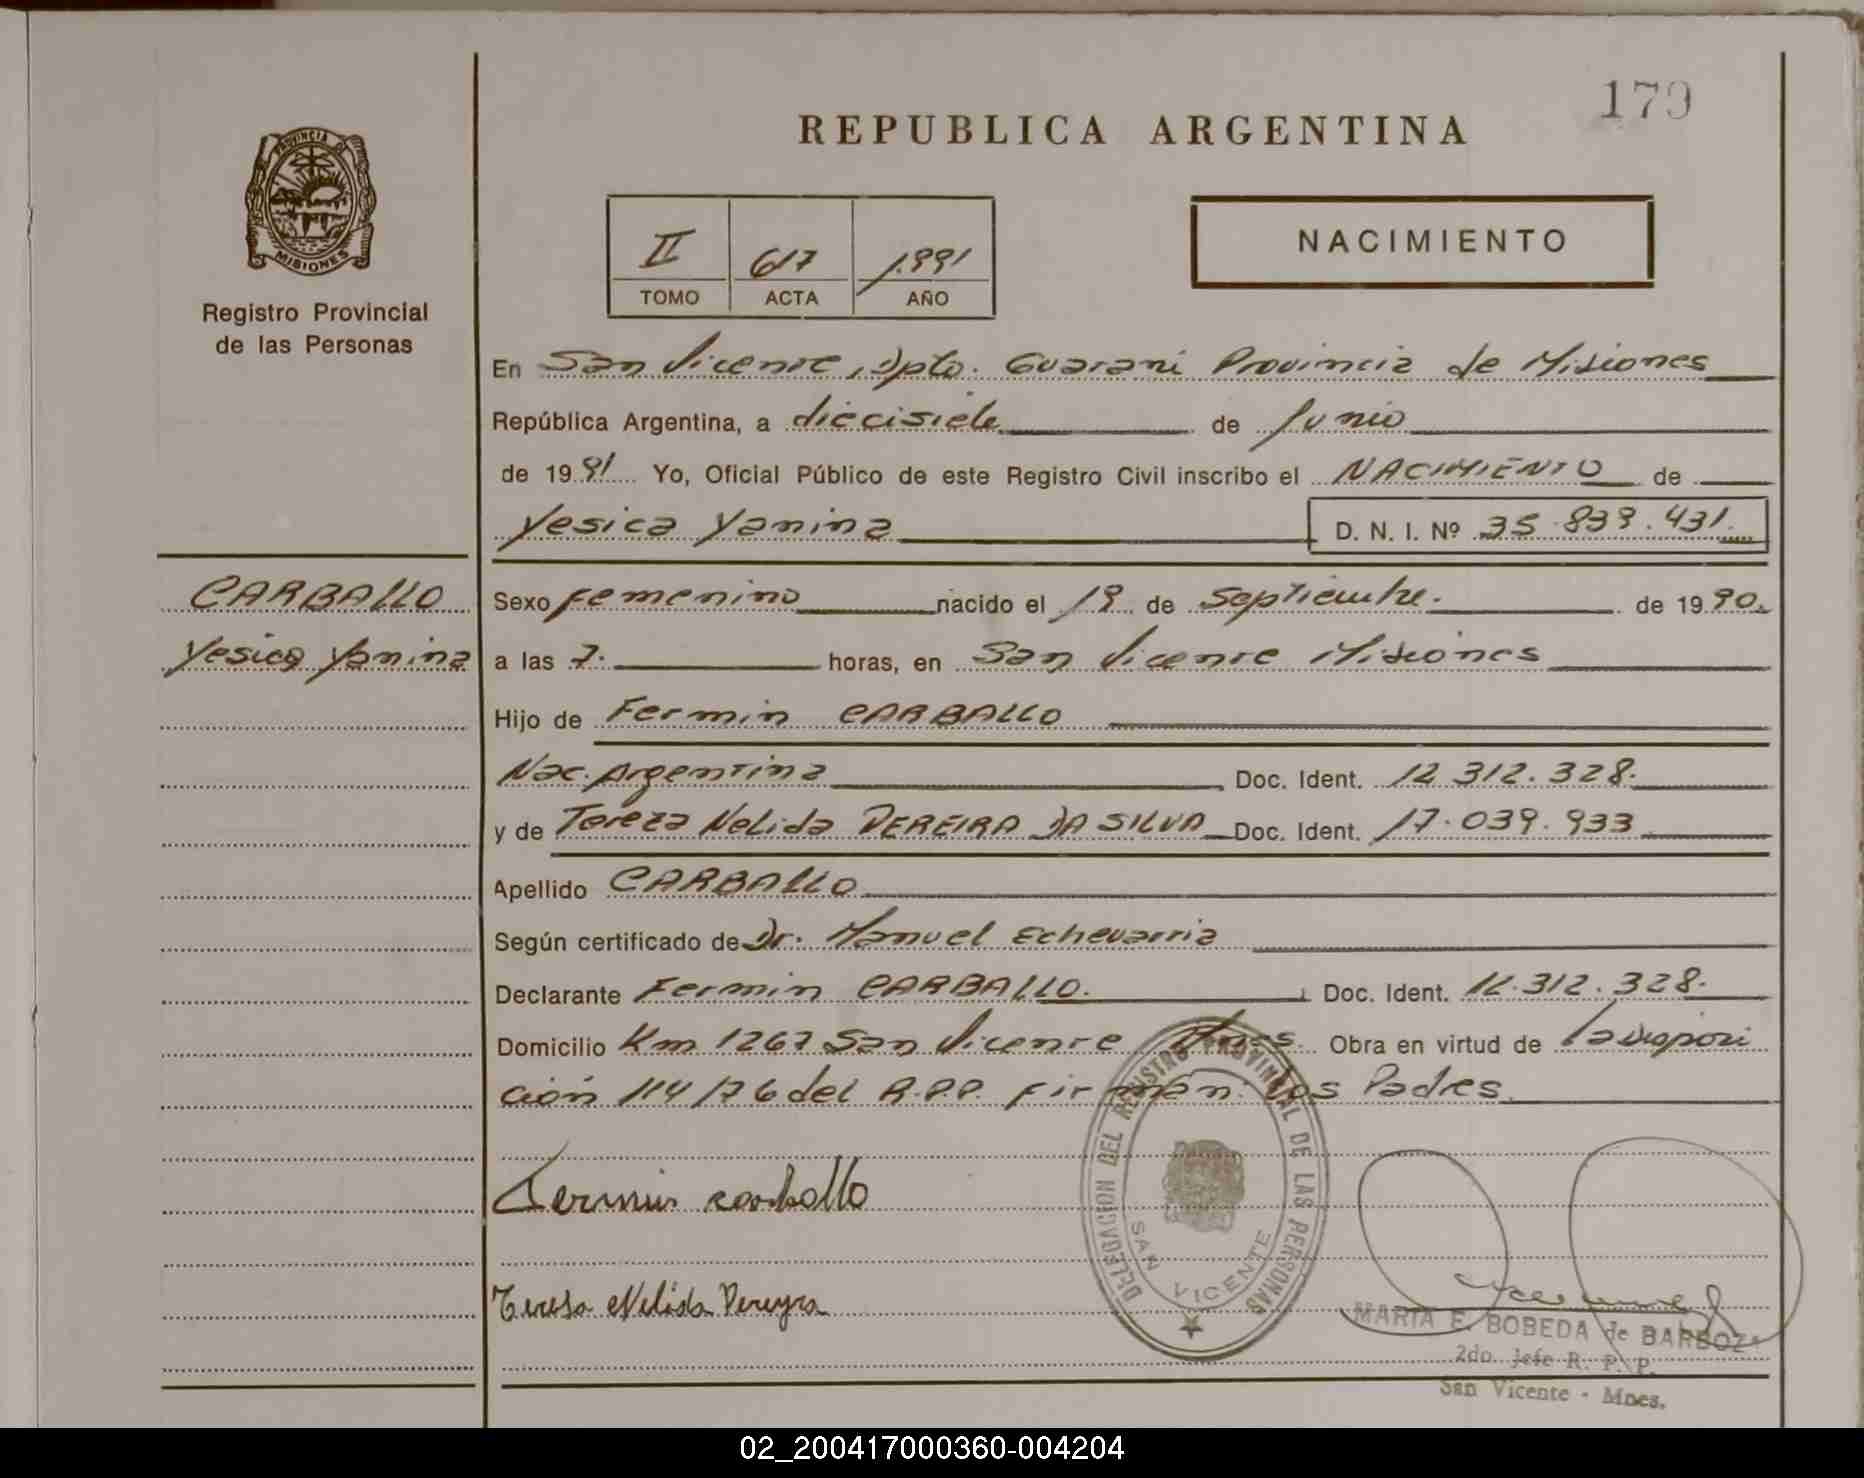 179
REPUBLICA ARGENTINA
PROVINCIA DE
MISIONES
Registro Provincial
de las Personas
II 617 1.991
TOMO ACTA AÑO
NACIMIENTO
En San Vicente, Dpto. Guaraní Provincia de Misiones
República Argentina, a diecisiete de Junio
de 1991 Yo, Oficial Público de este Registro Civil inscribo el NACIMIENTO de
Yesica Yanina D. N. I. Nº 35.839.431.
CARBALLO
Yesica Yanina
Sexo femenino nacido el 19 de Septiembre. de 1990.
a las 7. horas, en San Vicente Misiones
Hijo de Fermin CARBALLO
Nac. Argentina Doc. Ident. 12.312.328.
y de Tereza Nelida PEREIRA DA SILVA Doc. Ident. 17.039.933
Apellido CARBALLO
Según certificado de Dr. Manuel Echevarria
Declarante Fermin CARBALLO. Doc. Ident. 12.312.328.
Domicilio Km 1267 San Vicente Mnes. Obra en virtud de la disposi
ción 114/76 del R.P.P. firman: los Padres.
Fermin carballo
Teresa Nelida Pereyra
DELEGACION DEL REGISTRO PROVINCIAL DE LAS PERSONAS
SAN VICENTE
MARIA E. BOBEDA de BARBOZA
2do. Jefe R. P. P.
San Vicente - Mnes.
02_200417000360-004204